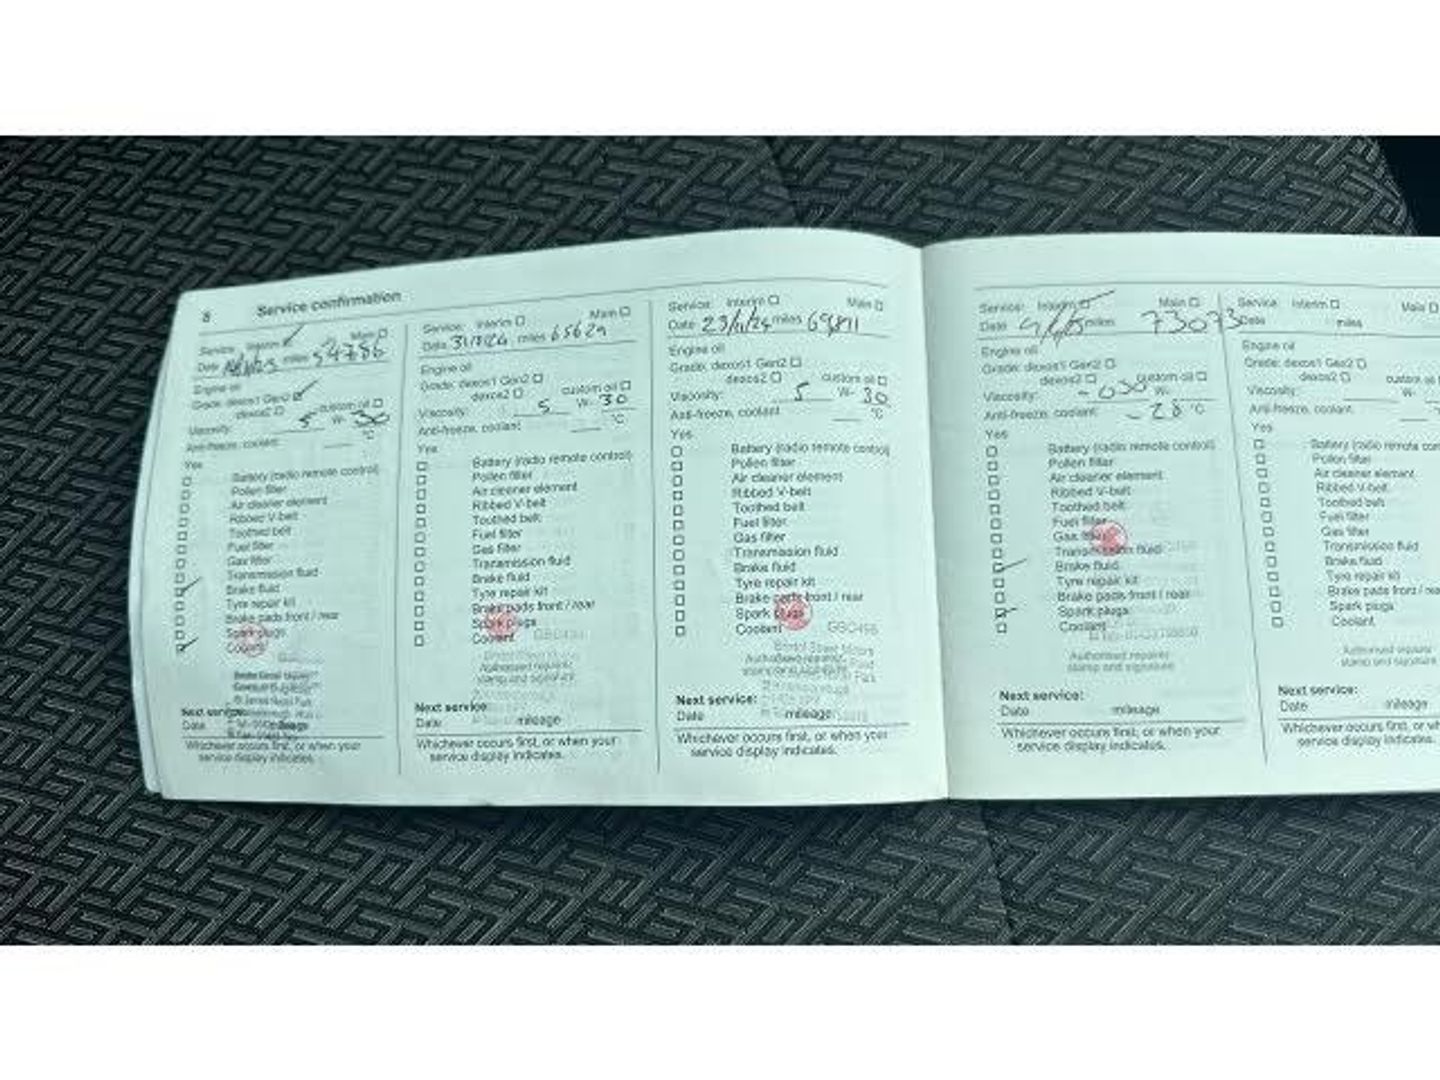 8 Service confirmation
Service: Interim Main
Date miles 54786
Engine oil
Grade: dexos1 Gen2
dexos2 custom oil
Viscosity: 5 W- 30
Anti-freeze, coolant: °C
Yes
Battery (radio remote control)
Pollen filter
Air cleaner element
Ribbed V-belt
Toothed belt
Fuel filter
Gas filter
Transmission fluid
Brake fluid
Tyre repair kit
Brake pads front / rear
Spark plugs
Coolant
Next service:
Date mileage
Whichever occurs first, or when your
service display indicates.
Service: Interim Main
Date miles 65629
Engine oil
Grade: dexos1 Gen2
dexos2 custom oil
Viscosity: 5 W- 30
Anti-freeze, coolant °C
Yes
Battery (radio remote control)
Pollen filter
Air cleaner element
Ribbed V-belt
Toothed belt
Fuel filter
Gas filter
Transmission fluid
Brake fluid
Tyre repair kit
Brake pads front / rear
Spark plugs
Coolant
Authorised repairer
stamp and signature
Next service:
Date mileage
Whichever occurs first, or when your
service display indicates.
Service: Interim Main
Date 23/11/24 miles 69811
Engine oil
Grade: dexos1 Gen2
dexos2 custom oil
Viscosity: 5 W- 30
Anti-freeze, coolant °C
Yes
Battery (radio remote control)
Pollen filter
Air cleaner element
Ribbed V-belt
Toothed belt
Fuel filter
Gas filter
Transmission fluid
Brake fluid
Tyre repair kit
Brake pads front / rear
Spark plugs
Coolant
Bristol Street Motors
Next service:
Date mileage
Whichever occurs first, or when your
service display indicates.
Service: Interim Main
Date miles 73073
Engine oil
Grade: dexos1 Gen2
dexos2 custom oil
Viscosity: W-
Anti-freeze, coolant: -28 °C
Yes
Battery (radio remote control)
Pollen filter
Air cleaner element
Ribbed V-belt
Toothed belt
Fuel filter
Gas filter
Transmission fluid
Brake fluid
Tyre repair kit
Brake pads front / rear
Spark plugs
Coolant
Authorised repairer
stamp and signature
Next service:
Date mileage
Whichever occurs first, or when your
service display indicates.
Service: Interim Main
Date miles
Engine oil
Grade: dexos1 Gen2
dexos2 custom
Viscosity: W-
Anti-freeze, coolant:
Yes
Battery (radio remote
Pollen filter
Air cleaner element
Ribbed V-belt
Toothed belt
Fuel filter
Gas filter
Transmission fluid
Brake fluid
Tyre repair kit
Brake pads front /
Spark plugs
Coolant
Authorised repairer
stamp and signature
Next service:
Date mileage
Whichever occurs first, or when
service display indicates.